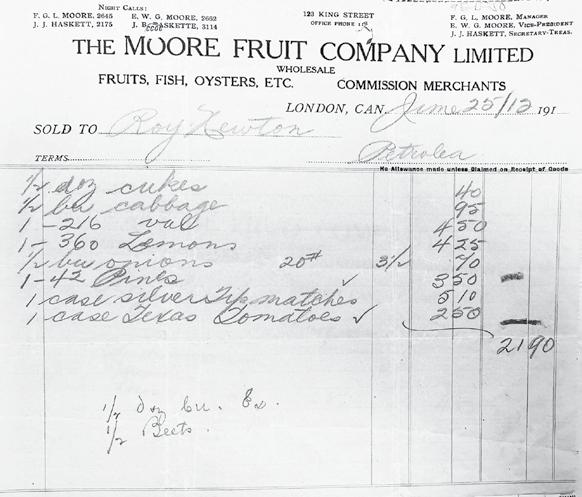 NIGHT CALLS:
F. G. L. MOORE, 2645 E. W. G. MOORE, 2662
J. J. HASKETT, 2175 J. B. HASKETTE, 3114
123 KING STREET
OFFICE PHONE
F. G. L. MOORE, MANAGER
E. W. G. MOORE, VICE-PRESIDENT
J. J. HASKETT, SECRETARY-TREAS.
THE MOORE FRUIT COMPANY LIMITED
WHOLESALE
FRUITS, FISH, OYSTERS, ETC. COMMISSION MERCHANTS
LONDON, CAN. June 25/13 191
SOLD TO Roy Newton
TERMS Petrolea
No Allowance made unless Claimed on Receipt of Goods
1/2 doz cukes 40
1/2 bu cabbage 95
1 - 216 val 450
1 - 360 Lemons 425
1/2 bu onions 20# 3 1/2 70
1 - 42 Pines ✓ 350
1 case silver Tip matches 510
1 case Texas Tomatoes ✓ 250
2190
1/2 doz Cu.
1/2 Beets.